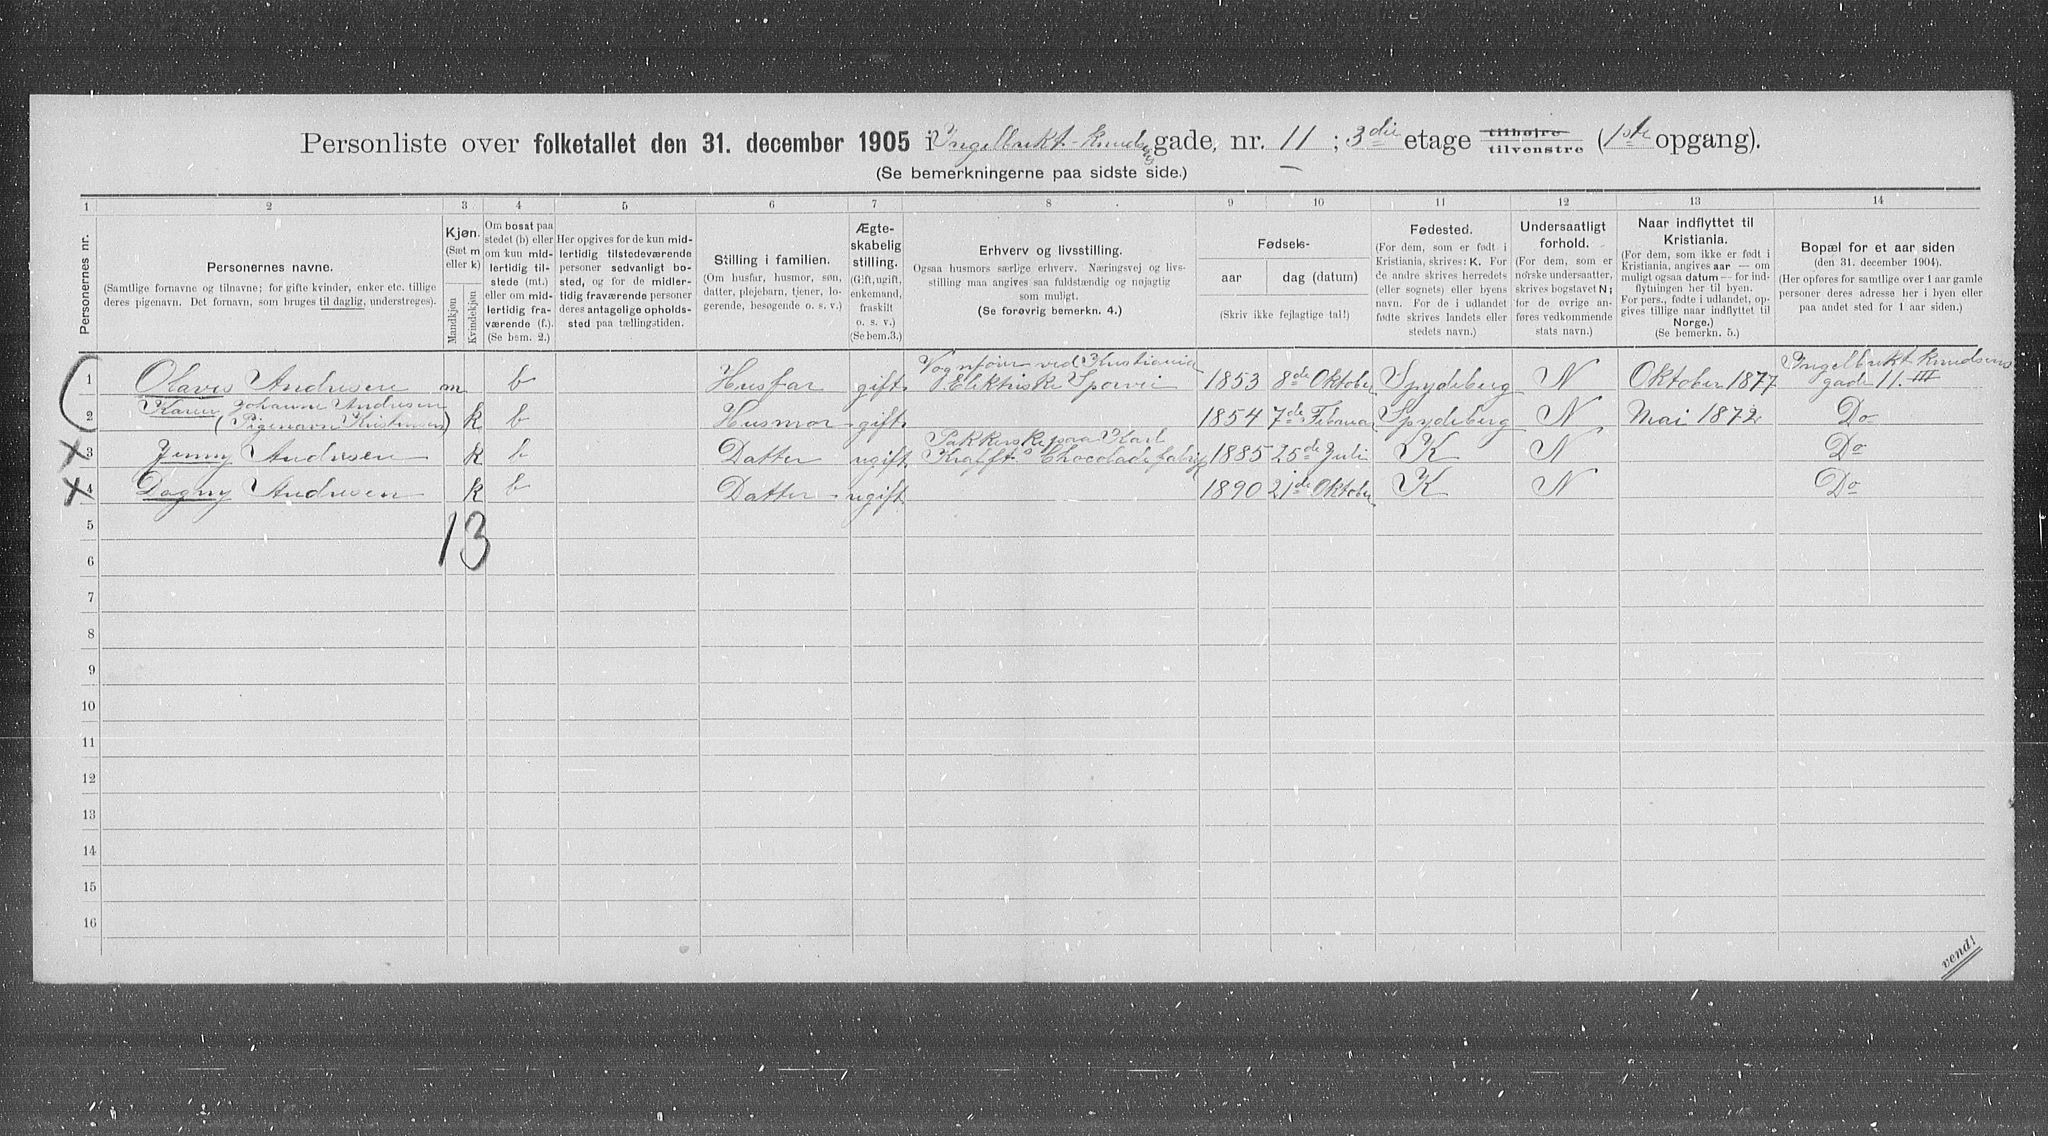 Personliste over folketallet den 31. december 1905 i Ingelbrekt Knudsens gade, nr. 11; 3die etage tilhøire tilvenstre (1ste opgang).
(Se bemerkningerne paa sidste side.)
1 2 3 4 5 6 7 8 9 10 11 12 13 14
Personernes nr.
Personernes navne.
(Samtlige fornavne og tilnavne; for gifte kvinder, enker etc. tillige
deres pigenavn. Det fornavn, som bruges til daglig, understreges).
Kjøn.
(Sæt m
eller k)
Mandkjøn
Kvindekjøn
Om bosat paa
stedet (b) eller
om kun midlertidig tilstede (mt.)
eller om midlertidig fraværende (f.).
(Se bem. 2.)
Her opgives for de kun midlertidig tilstedeværende
personer sedvanligt bosted, og for de midlertidig fraværende personer
deres antagelige opholdssted paa tællingstiden.
Stilling i familien.
(Om husfar, husmor, søn,
datter, plejebarn, tjener, logerende, besøgende o. s. v.)
Ægteskabelig
stilling.
(Gift, ugift,
enkemand,
fraskilt
o. s. v.)
(Se bem. 3.)
Erhverv og livsstilling.
Ogsaa husmors særlige erhverv. Næringsvej og livsstilling maa angives saa fuldstændig og nøjagtig
som muligt.
(Se forøvrig bemerkn. 4.)
Fødsels-
aar dag (datum)
(Skriv ikke fejlagtige tal!)
Fødested.
(For dem, som er født i
Kristiania, skrives: K. For
de andre skrives herredets
(eller sognets) eller byens
navn. For de i udlandet
fødte skrives landets eller
stedets navn.)
Undersaatligt
forhold.
(For dem, som er
norske undersaatter,
skrives bogstavet N;
for de øvrige anføres vedkommende
stats navn.)
Naar indflyttet til
Kristiania.
(For dem, som ikke er født i
Kristiania, angives aar — om
muligt ogsaa datum — for indflytningen her til byen.
For pers., fødte i udlandet, opgives tillige naar indflyttet til
Norge.)
(Se bemerkn. 5.)
Bopæl for et aar siden
(den 31. december 1904).
(Her opføres for samtlige over 1 aar gamle
personer deres adresse her i byen eller
paa andet sted for 1 aar siden.)
1 Olaves Andresen m b Husfar gift Vognfører ved Kristiania Elektriske Sporvei 1853 8de Oktober Spydeberg N Oktober 1877 Ingelbrekt Knudsens gade 11. III
2 Karen Johanne Andresen (Pigenavn Kristensen) k b Husmor gift 1854 7de Februar Spydeberg N Mai 1872 Do
3 Jenny Andresen k b Datter ugift Pakkerske paa Karl Krafft's Chocoladefabrik 1885 25de Juli K N Do
4 Dagny Andresen k b Datter ugift 1890 21de Oktober K N Do
13
5
6
7
8
9
10
11
12
13
14
15
16
vend!